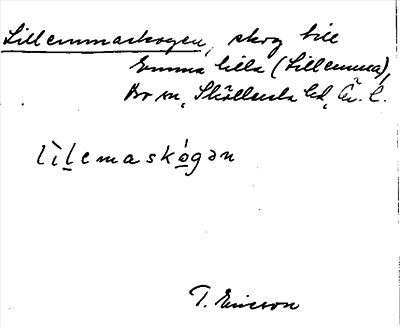 Lillemmaskogen, skog till
Emma lilla (Lillemma),
Bo sn, Sköllersta hd, Ör. l.
lìlemaskógən
T. Ericson